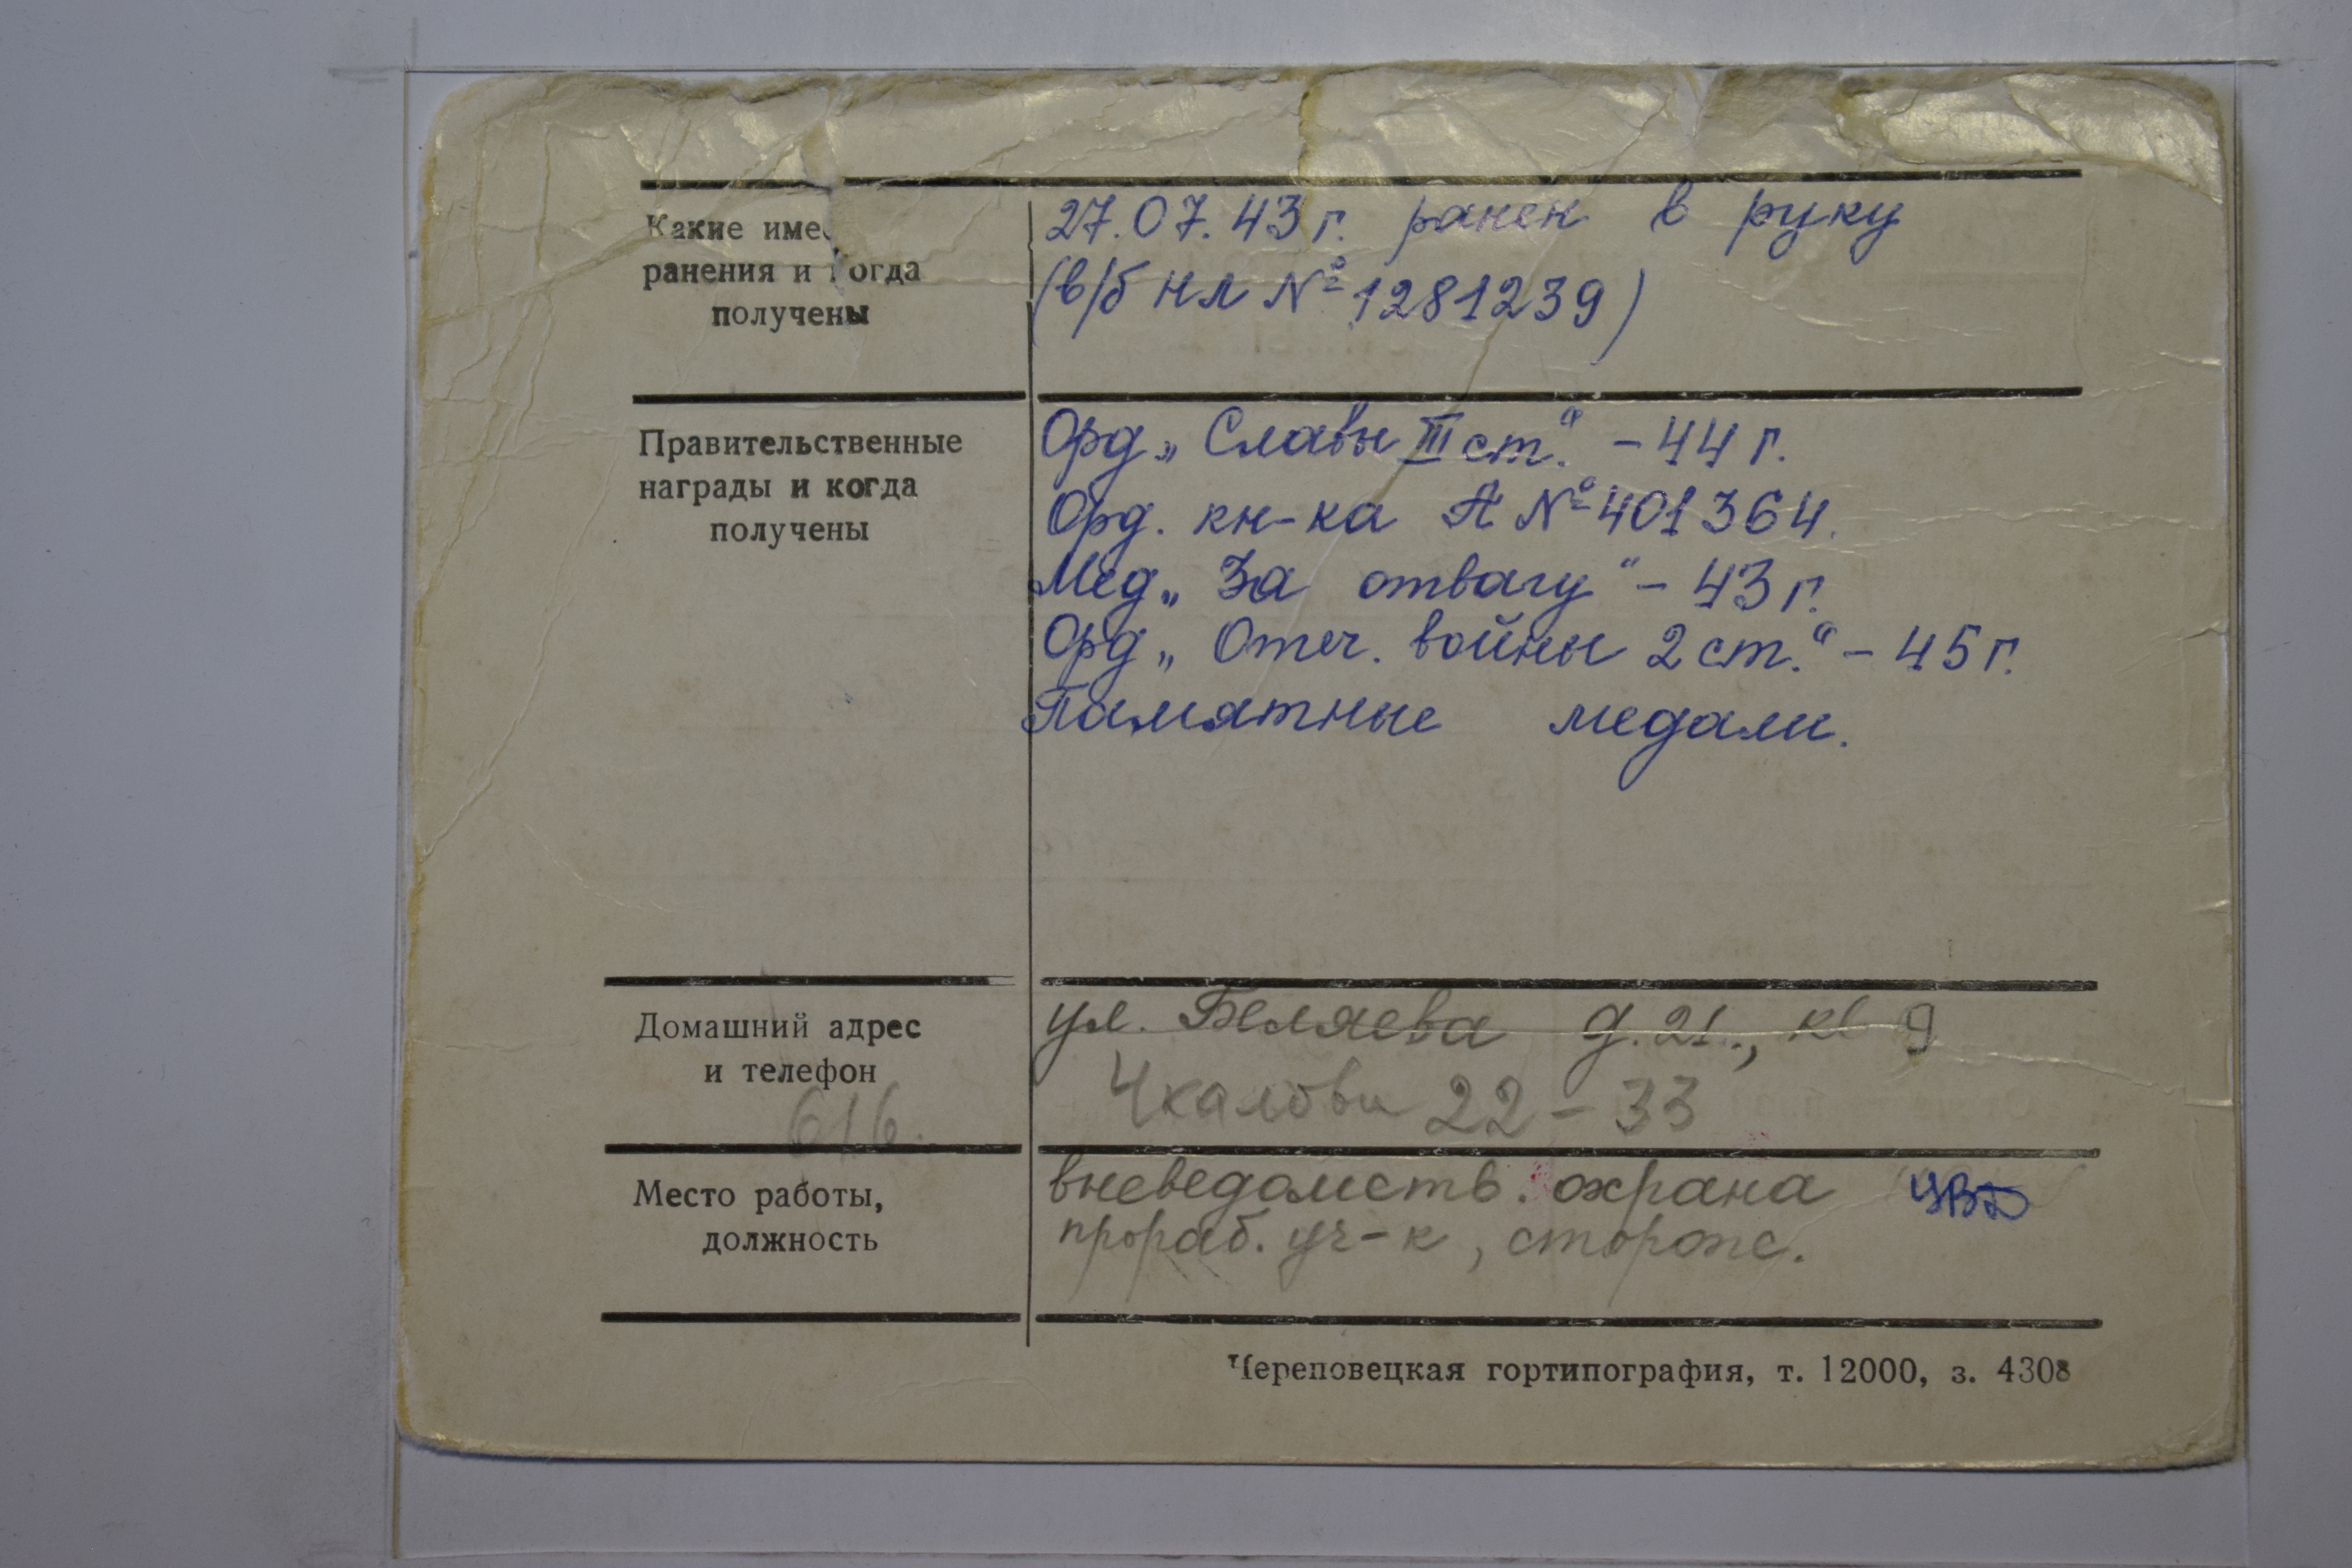 Какие име
27.07.43 г. ранен в руку
ранения и когда
(в/б нл № 1281239)
получены
Правительственные
награды и когда
получены
Орд „Славы III ст." - 44 г.
Орд. кн-ка А № 401364.
Мед „За отвагу" - 43 г.
Орд „Отеч. войны 2 ст." - 45 г.
Памятные медали.
Домашний адрес
и телефон
616.
ул. Беляева д. 21., кв 9
Чкалова 22 - 33
Место работы,
должность
вневедомств. охрана
прораб. уч-к, сторож.
Череповецкая гортипография, т. 12000, з. 4308